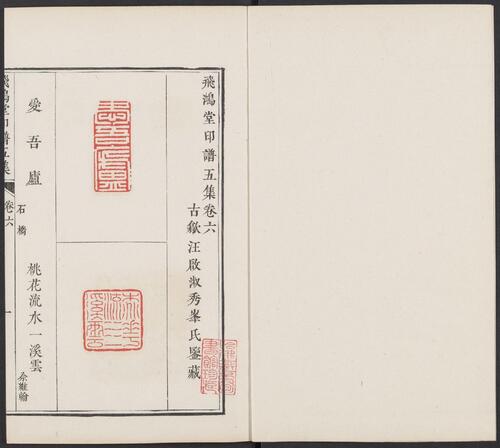 飛鴻堂印譜五集卷六
古歙汪啟淑秀峯氏鑒藏
愛吾廬
石橋
桃花流水一溪雲
余維翰
飛鴻堂印譜五集
卷六
一